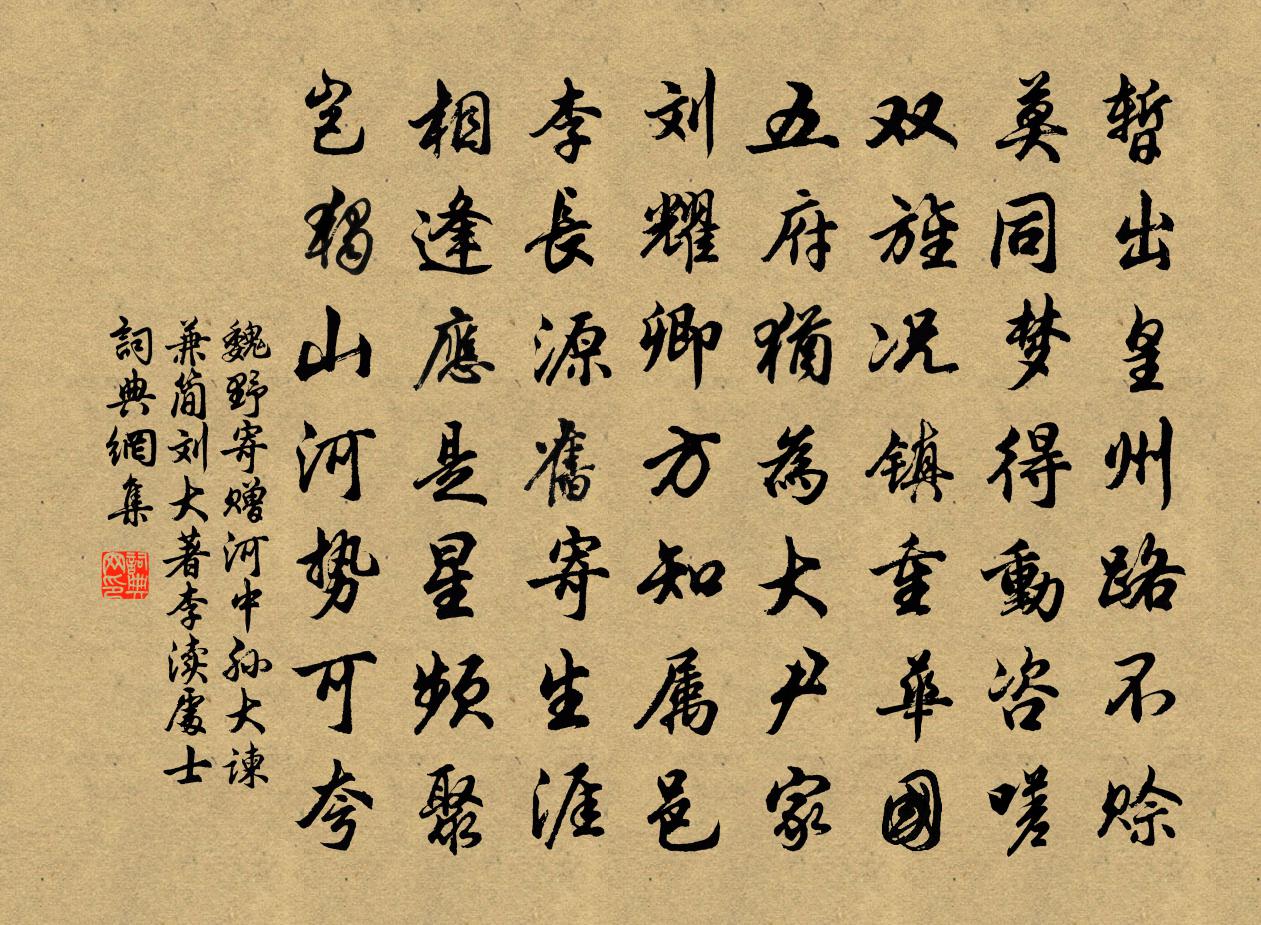 暫出皇州路不赊
莫同梦得動咨嗟
双旌况镇重華國
五府猶為大尹家
刘耀卿方知属邑
李長源舊寄生涯
相逢應是星频聚
岂独山河势可夸
魏野寄赠河中孙大谏
兼简刘大著李渎處士
詞典網集
詞典
网印